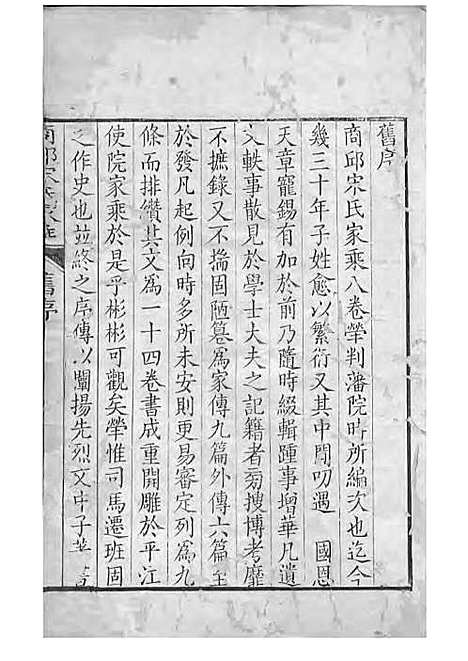 舊序
商邱宋氏家乘八卷犖判藩院時所編次也迄今
幾三十年子姓愈以繁衍又其中閒叨遇 國恩
天章寵錫有加於前乃隨時綴輯踵事增華凡遺
文軼事散見於學士大夫之記籍者旁搜博考靡
不摭錄又不揣固陋篹爲家傳九篇外傳六篇至
於發凡起例向時多所未安則更易審定列爲九
條而排纘其文爲一十四卷書成重開雕於平江
使院家乘於是乎彬彬可觀矣犖惟司馬遷班固
之作史也並終之序傳以闡揚先烈文中子
商邱宋氏家乘 舊序